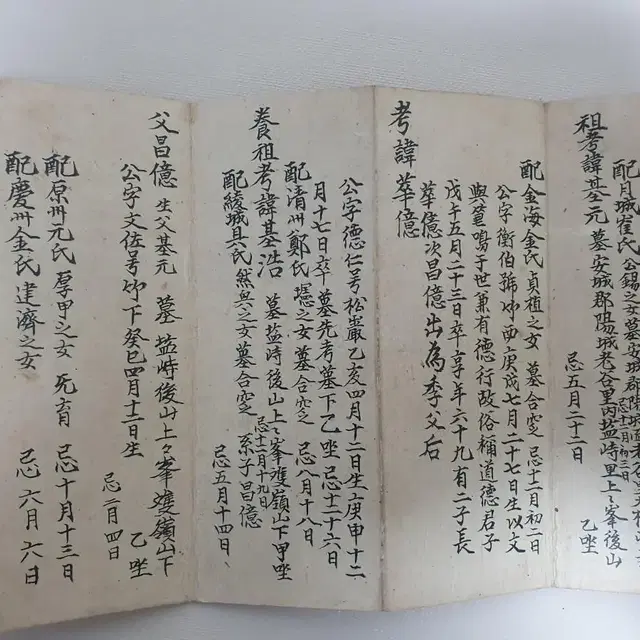 配月城崔氏公錫之女墓安城郡陽城老
忌十二月初三日
祖考諱基元 墓安城郡陽城老谷里內盐峙里上々峯後山
乙坐
忌五月二十二日
配金海金氏貞植之女 墓合窆 忌十二月初一日
公字衡伯號 西庚戌七月二十七日生以文
與篁鳴于世兼有德行政俗稱道德君子
戊午五月二十三日卒享年六十九有二子長
華億次昌億出為季父后
考諱華億
公字德仁号松巖乙亥四月十二日生庚申十二
月十七日卒墓先考墓下乙坐忌十二十六日
配清州鄭氏 之女墓合窆 忌八月十八日
養祖考諱基浩 墓盐峙後山上々峯雙嶺山下甲坐
忌十二月十九日
配綾城具氏然奐之女墓合窆 系子昌億
忌五月十四日
父昌億 生父基元 墓 盐峙後山上々峯雙嶺山下
乙坐
公字文佐号竹下癸巳四月十二日生
忌二月四日
配原州元氏厚甲之女 死育 忌十月十三日
配慶州金氏建濟之女 忌六月六日